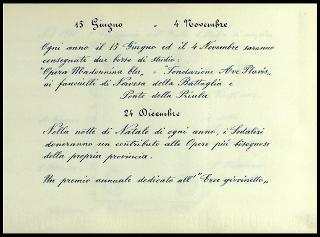 15 Giugno - 4 Novembre
Ogni anno il 15 Giugno ed il 4 Novembre saranno
consegnate due borse di studio:
"Opera Madonnina blu" - Fondazione Ave Plavis,
ai fanciulli di Nervesa della Battaglia e
Ponte della Priula
24 Dicembre
Nella notte di Natale di ogni anno, i Sodalizi
doneranno un contributo alle Opere più bisognose
della propria provincia.
Un premio annuale dedicato all'"Eroe giovinetto"